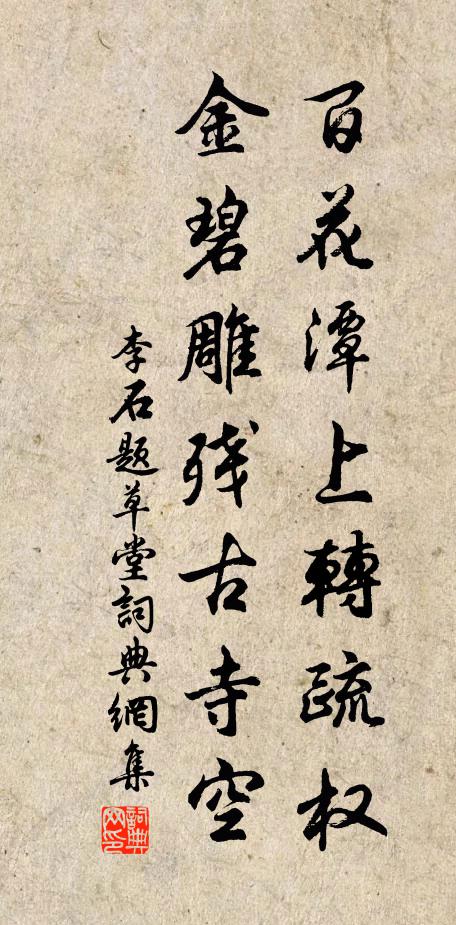 百花潭上轉疏杈
金碧雕残古寺空
李石题草堂詞典網集
詞典网印